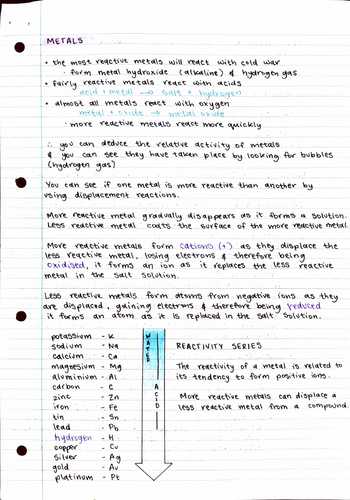 METALS
• the most reactive metals will react with cold war
- form metal hydroxide (alkaline) & hydrogen gas
• fairly reactive metals react with acids
acid + metal → salt + hydrogen
• almost all metals react with oxygen
metal + oxide → metal oxide
- more reactive metals react more quickly
∴ you can deduce the relative activity of metals
& you can see they have taken place by looking for bubbles
(hydrogen gas)
You can see if one metal is more reactive than another by
using displacement reactions.
More reactive metal gradually disappears as it forms a solution.
Less reactive metal coats the surface of the more reactive metal.
More reactive metals form cations (+) as they displace the
less reactive metal, losing electrons & therefore being
oxidised, it forms an ion as it replaces the less reactive
metal in the salt solution.
Less reactive metals form atoms from negative ions as they
are displaced, gaining electrons & therefore being reduced
it forms an atom as it is replaced in the salt solution.
potassium - K
sodium - Na
calcium - Ca
magnesium - Mg
aluminium - Al
carbon - C
zinc - Zn
iron - Fe
tin - Sn
lead - Pb
hydrogen - H
copper - Cu
silver - Ag
gold - Au
platinum - Pt
WATER
ACID
REACTIVITY SERIES
The reactivity of a metal is related to
its tendency to form positive ions.
More reactive metals can displace a
less reactive metal from a compound.